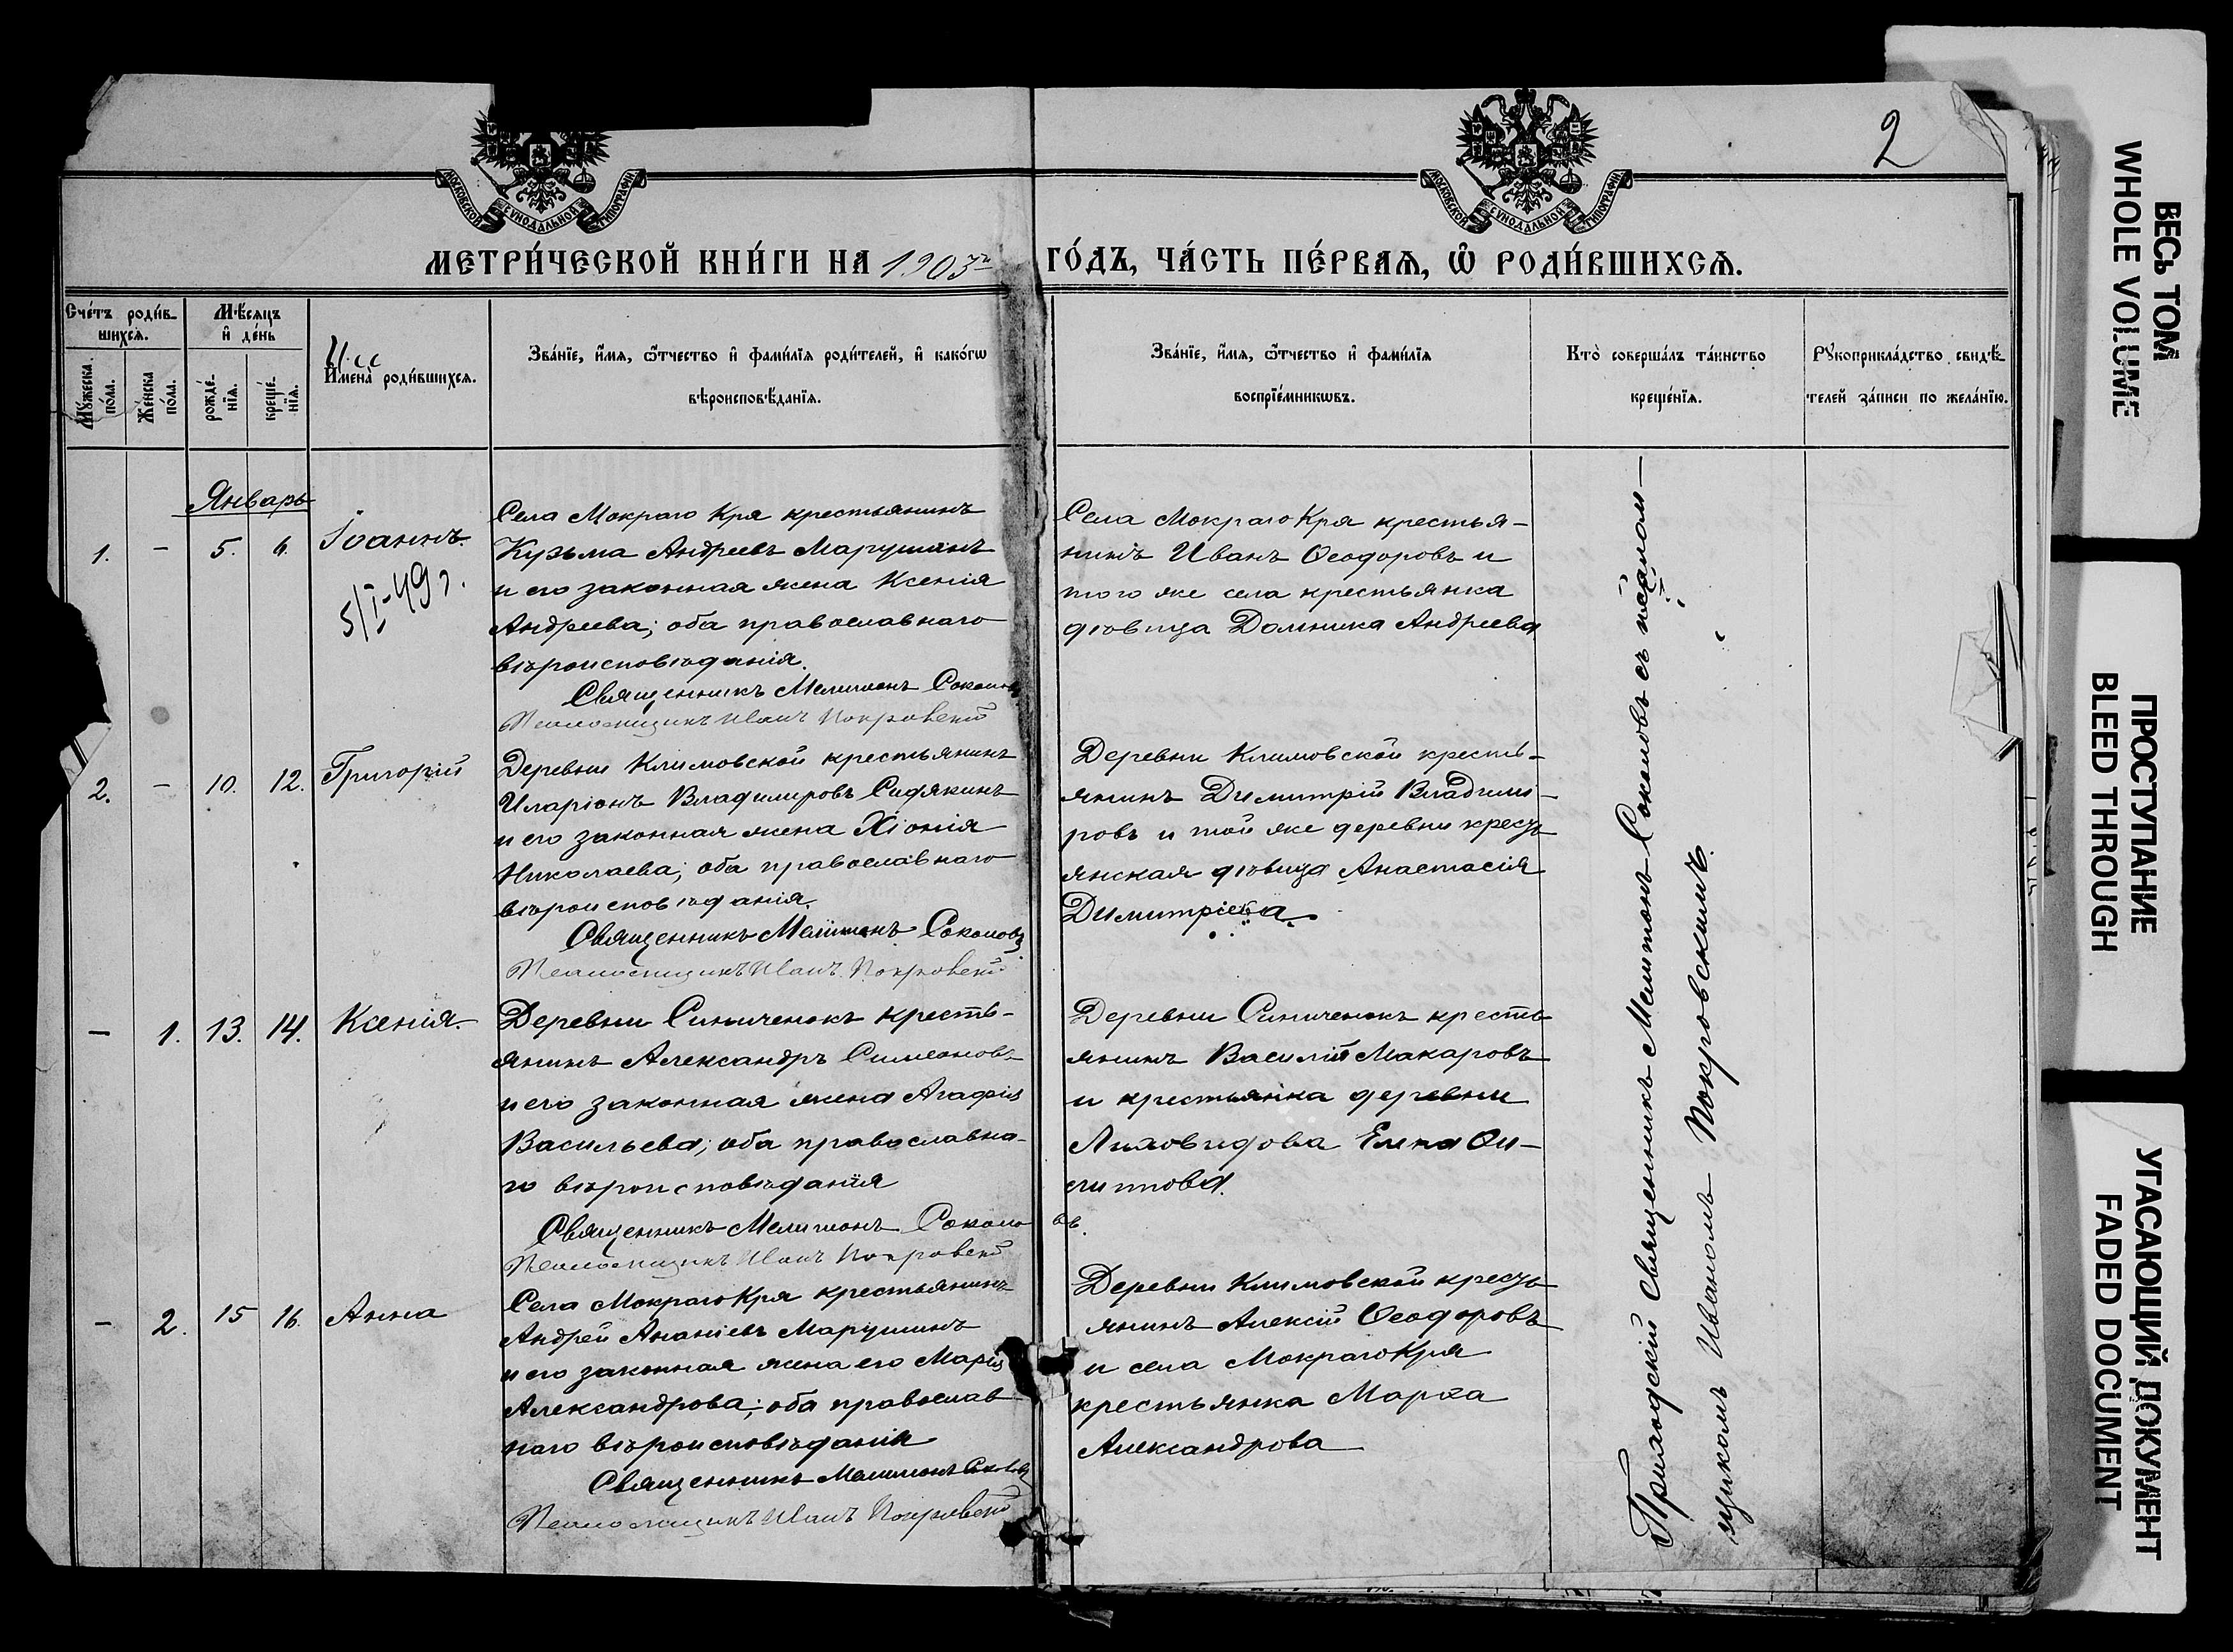 2
МОСКОВСКОЙ СУНОДАЛЬНОЙ ТИПОГРАФІИ
МОСКОВСКОЙ СУНОДАЛЬНОЙ ТИПОГРАФІИ
МЕТРИ́ЧЕСКОЙ КНИ́ГИ НА 1903й ГО́ДЪ, ЧА́СТЬ ПЕ́РВАѦ, Ѡ҆ РОДИ́ВШИХСѦ.
Сче́тъ роди́в-
шихсѧ.
Мꙋ́жеска по́ла.
Же́нска по́ла.
Мѣ́сѧцъ
и҆ де́нь
рожде́-
нїѧ.
креще́-
нїѧ.
И҆мена̀ роди́вшихсѧ.
Зва́нїе, и҆́мѧ, ѻ҆́тчество и҆ фами́лїѧ роди́телей, и҆ како́гѡ
вѣроисповѣ́данїѧ.
Зва́нїе, и҆́мѧ, ѻ҆́тчество и҆ фами́лїѧ
воспрїе́мникѡвъ.
Кто̀ соверша́лъ та́инство
креще́нїѧ.
Рꙋкоприкла́дство свидѣ́-
телей за́писи по жела́нїю.
Январь
1. - 5. 6. Іоаннъ.
5/I-49 г.
Села Мокраго Кря крестьянинъ
Кузьма Андреевъ Марушинъ
и его законная жена Ксенія
Андреева; оба православнаго
вѣроисповѣданія.
Священникъ Мелитонъ Соколовъ
Псаломщикъ Иванъ Покровскій
Села Мокраго Кря крестья-
нинъ Иванъ Ѳеодоровъ и
того же села крестьянка
дѣвица Домника Андреева
2. - 10. 12. Григорій
Деревни Климовской крестьянинъ
Иларіонъ Владимировъ Сидякинъ
и его законная жена Хіонія
Николаева; оба православнаго
вѣроисповѣданія.
Священникъ Мелитонъ Соколовъ
Псаломщикъ Иванъ Покровскій
Деревни Климовской кресть-
янинъ Димитрій Владими-
ровъ и той же деревни кресть
янская дѣвица Анастасія
Димитріева.
- 1. 13. 14. Ксенія.
Деревни Синиченокъ кресть-
янинъ Александръ Симеоновъ
и его законная жена Агафія
Васильева; оба православна-
го вѣроисповѣданія
Священникъ Мелитонъ Соколовъ.
Псаломщикъ Иванъ Покровскій
Деревни Синиченокъ кресть
янинъ Василій Макаровъ
и крестьянка деревни
Лиховидова
- 2. 15 16. Анна
Села Мокраго Кря крестьянинъ
Андрей Ананіевъ Марушинъ
и его законная жена его Марія
Александрова; оба православ
наго вѣроисповѣданія
Священникъ Мелитонъ Соколовъ
Псаломщикъ Иванъ Покровскій
Деревни Климовской кресть
янинъ Алексій Ѳеодоровъ
и села Мокраго Кря
крестьянка Марѳа
Александрова
Приходскій Священникъ Мелитонъ Соколовъ съ псалом-
щикомъ Иваномъ Покровскимъ.
ВЕСЬ ТОМ
WHOLE VOLUME
ПРОСТУПАНИЕ
BLEED THROUGH
УГАСАЮЩИЙ ДОКУМЕНТ
FADED DOCUMENT